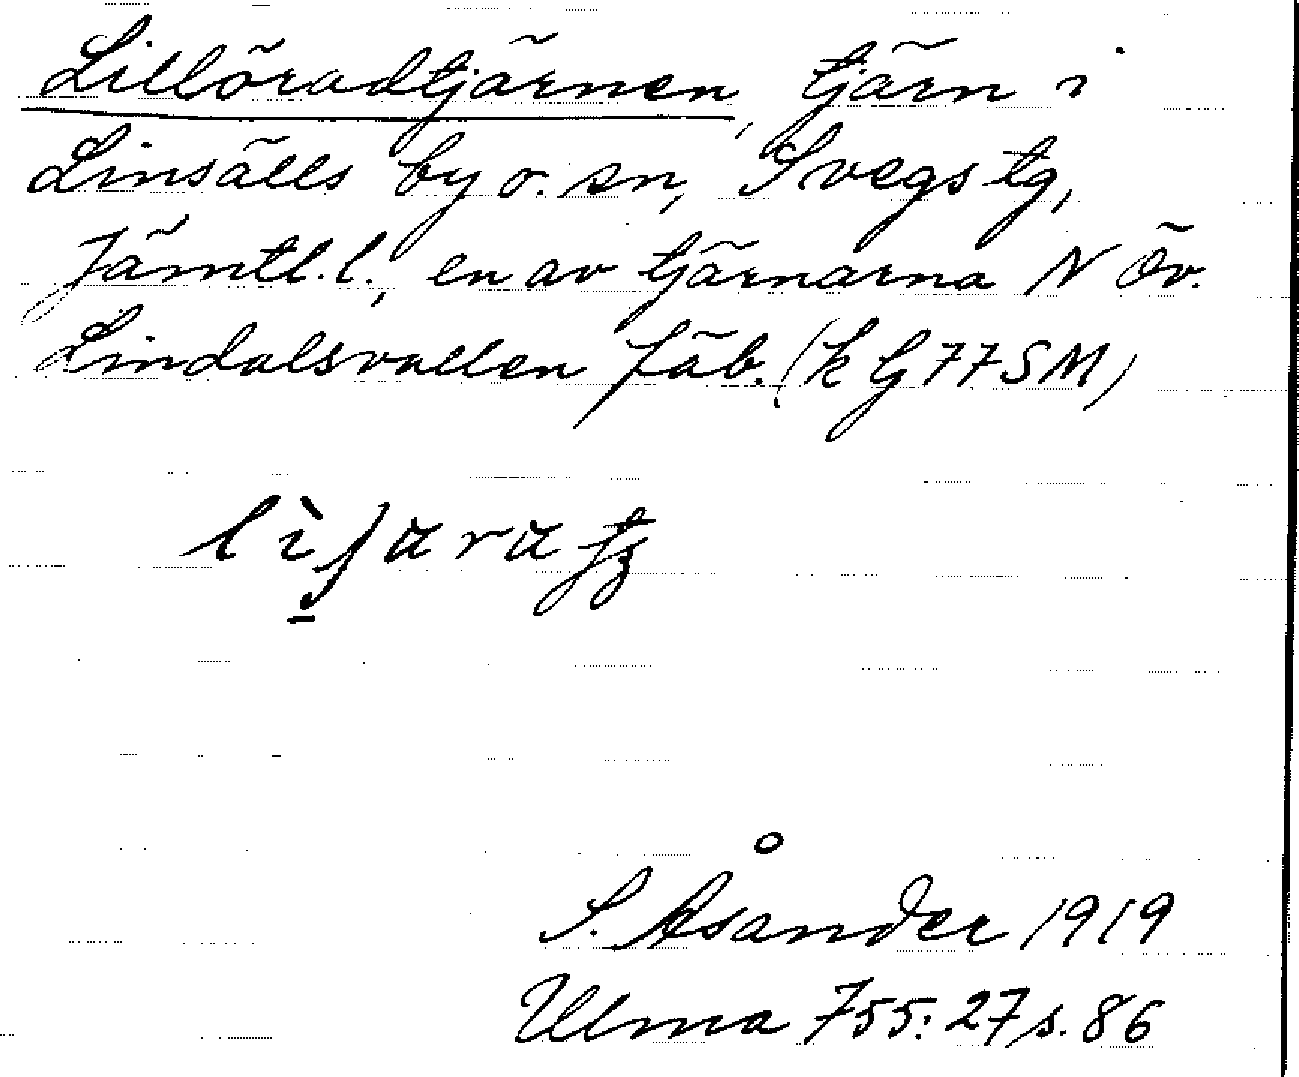 Lillöradtjärnen, tjärn i
Linsälls by o. sn, Svegs tg,
Jämtl. l., en av tjärnarna N Öv.
Lindalsvallen fäb. (k G77SM)
S. Åsander 1919
Ulma 755:27 s. 86